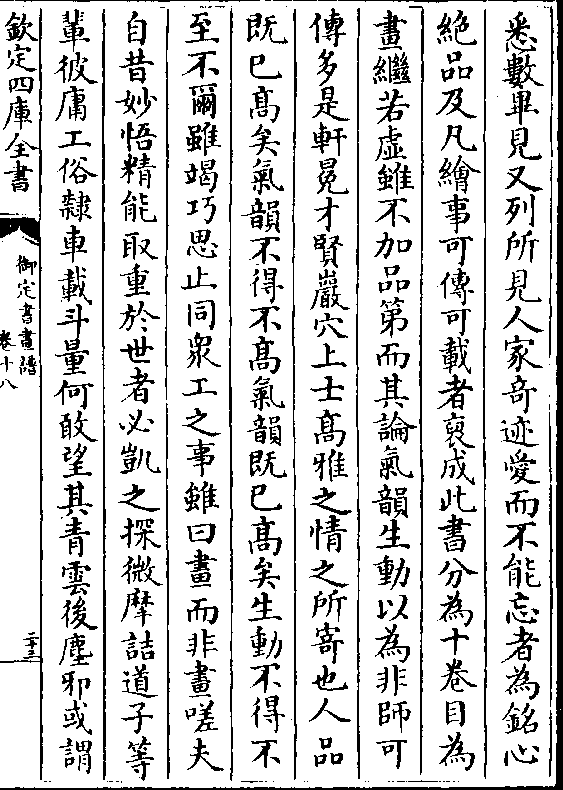 悉數畢見又列所見人家奇迹愛而不能忘者為銘心
絶品及凡繪事可傳可載者裒成此書分為十卷目為
畫繼若虚雖不加品第而其論氣韻生動以為非師可
傳多是軒冕才賢巖穴上士髙雅之情之所寄也人品
既已髙矣氣韻不得不髙氣韻既已髙矣生動不得不
至不爾雖竭巧思止同衆工之事雖曰畫而非畫嗟夫
自昔妙悟精能取重於世者必凱之探微摩詰道子等
輩彼庸工俗隸車載斗量何敢望其青雲後塵邪或謂
欽定四庫全書
御定書畫譜
卷十八
二十三